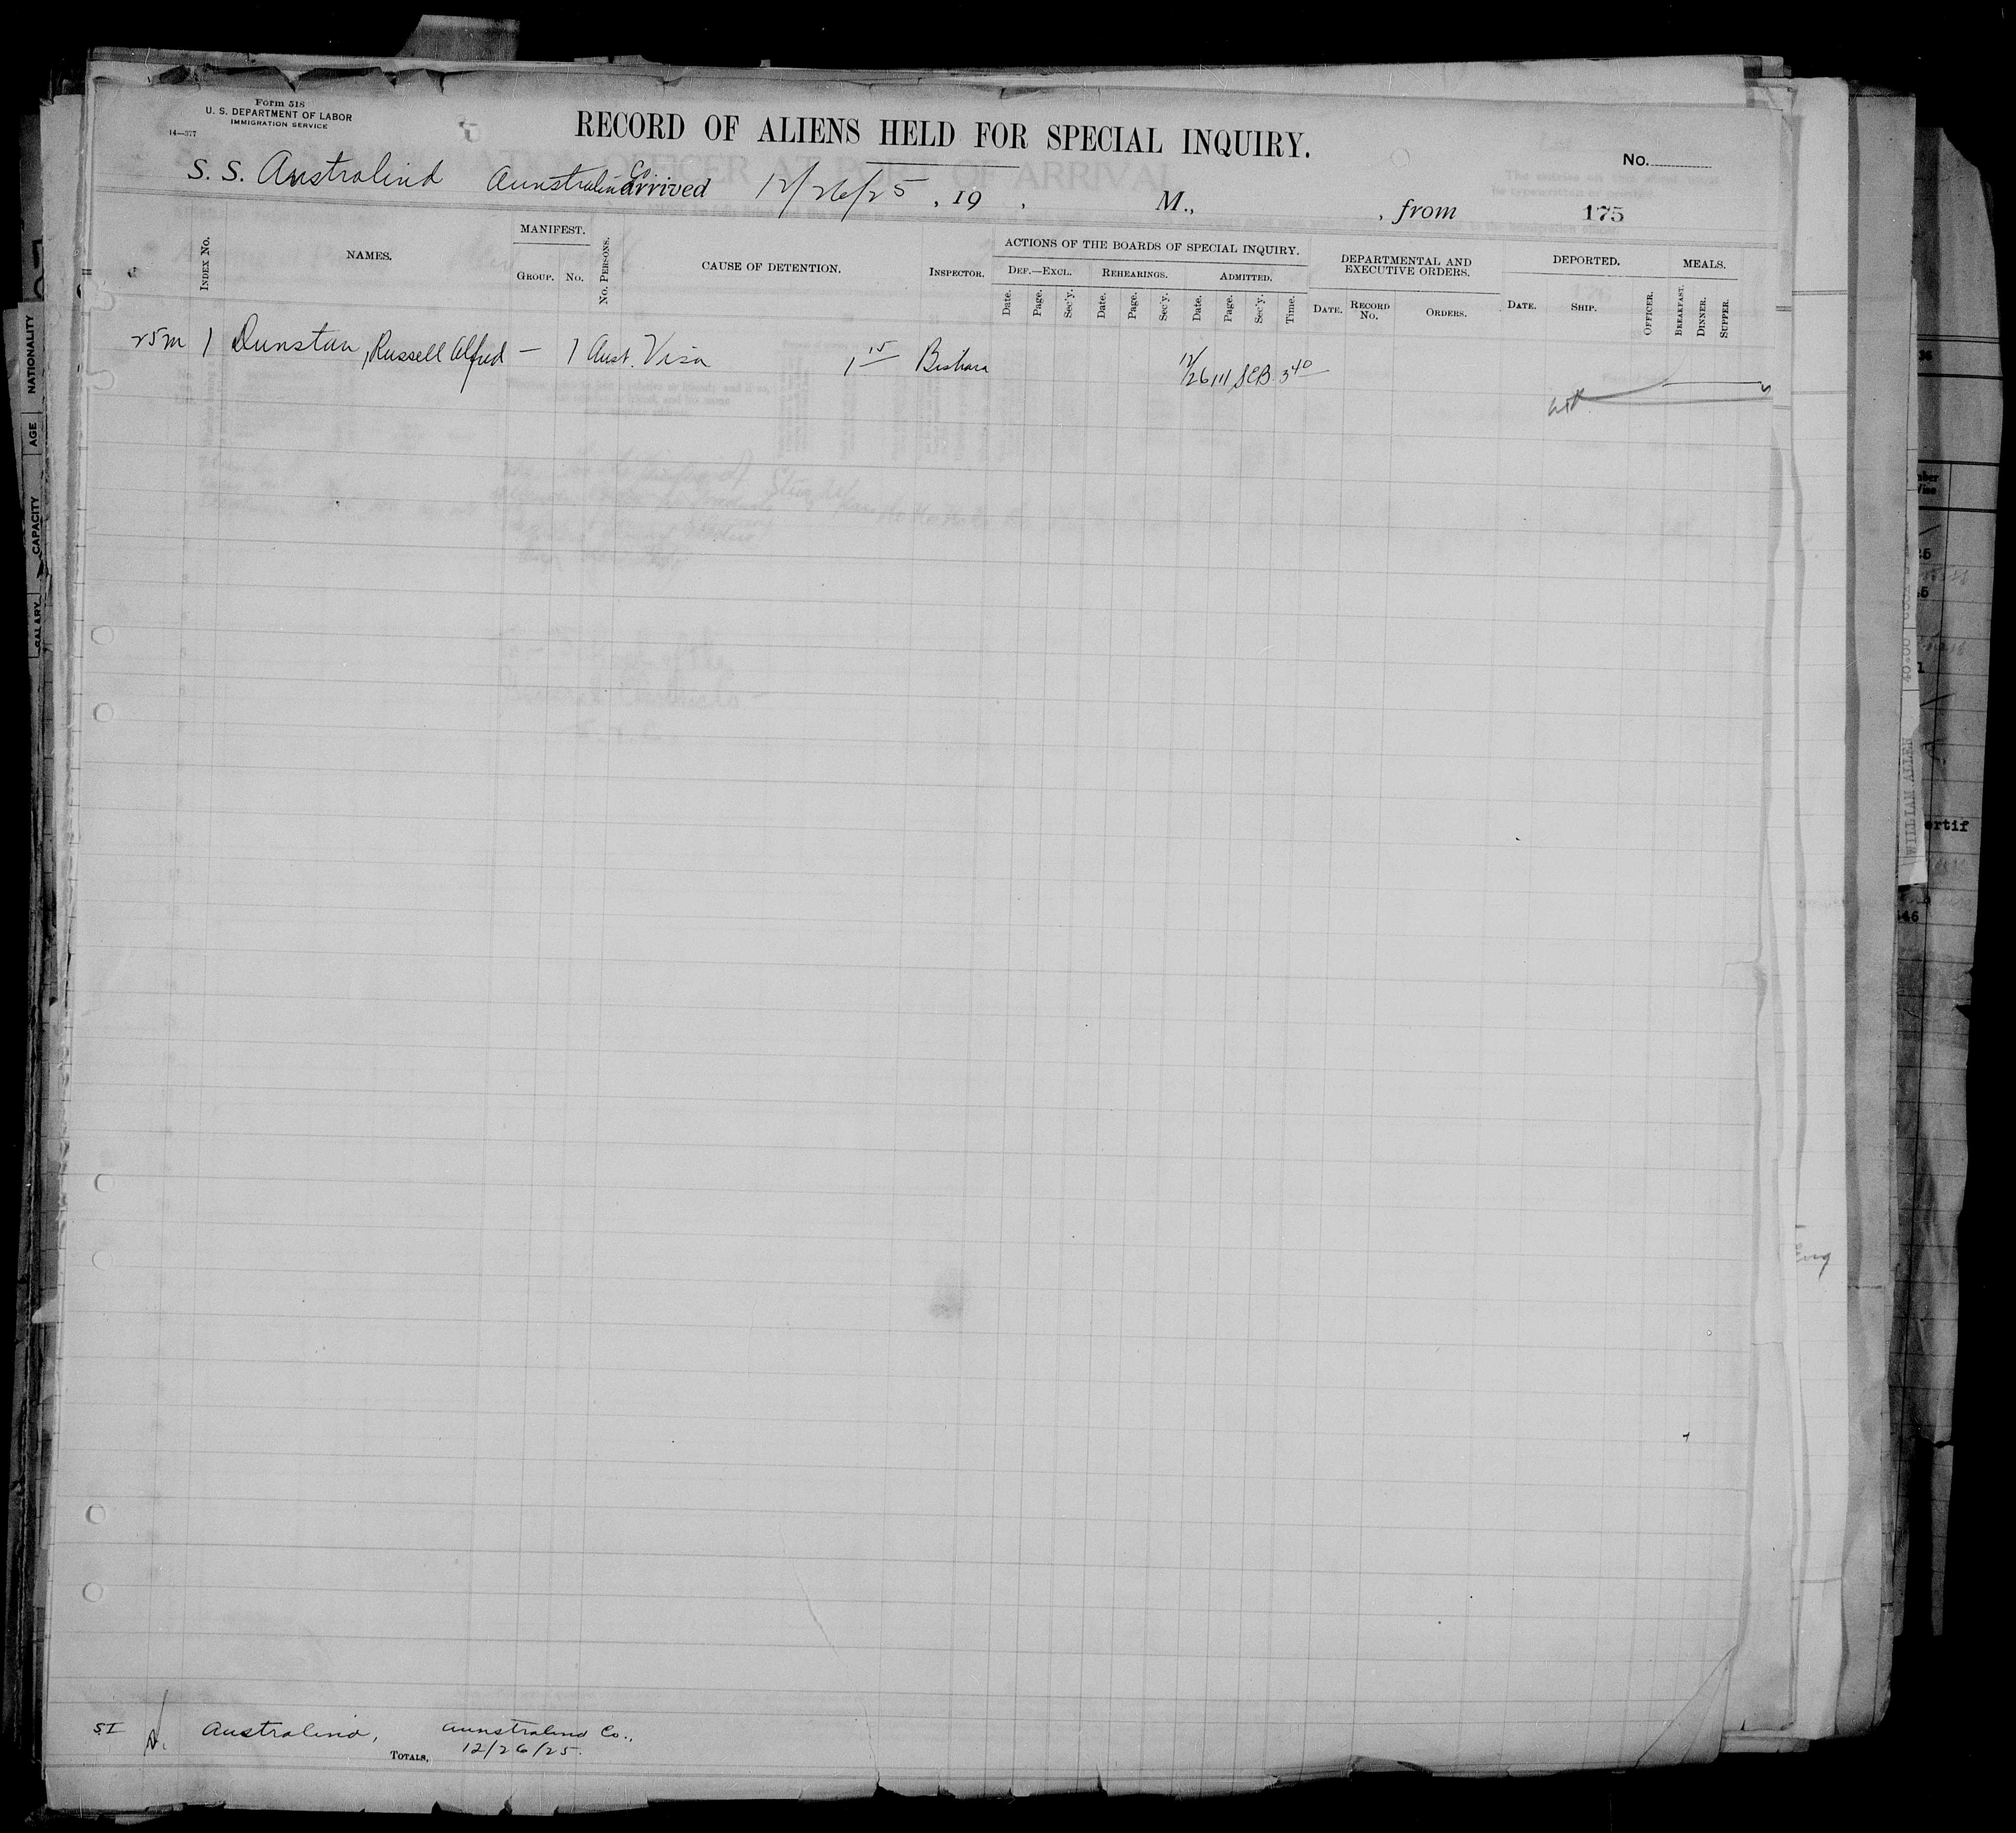 Form 518
U. S. DEPARTMENT OF LABOR
IMMIGRATION SERVICE
14—377
RECORD OF ALIENS HELD FOR SPECIAL INQUIRY.
No.
S. S. Australind Aunstralind Co. arrived 12/26/25, 19 , M., , from 175
INDEX NO. NAMES. MANIFEST. GROUP. NO. NO. PERSONS. CAUSE OF DETENTION. INSPECTOR. ACTIONS OF THE BOARDS OF SPECIAL INQUIRY. DEPARTMENTAL AND EXECUTIVE ORDERS. DEPORTED. MEALS.
DEF.—EXCL. REHEARINGS. ADMITTED.
Date. Page. Sec'y. Date. Page. Sec'y. Date. Page. Sec'y. Time. DATE. RECORD NO. ORDERS. DATE. SHIP. OFFICER. BREAKFAST. DINNER. SUPPER.
25m 1 Dunstan, Russell Alfred — 1 Aust. Visa 1 15 Bishara 12/26 111 SEB 3 40
SI Australind, Aunstralind Co.,
TOTALS, 12/26/25.
NATIONALITY
AGE
CAPACITY
SALARY
WILLIAM ALLEN
ertif
Eng